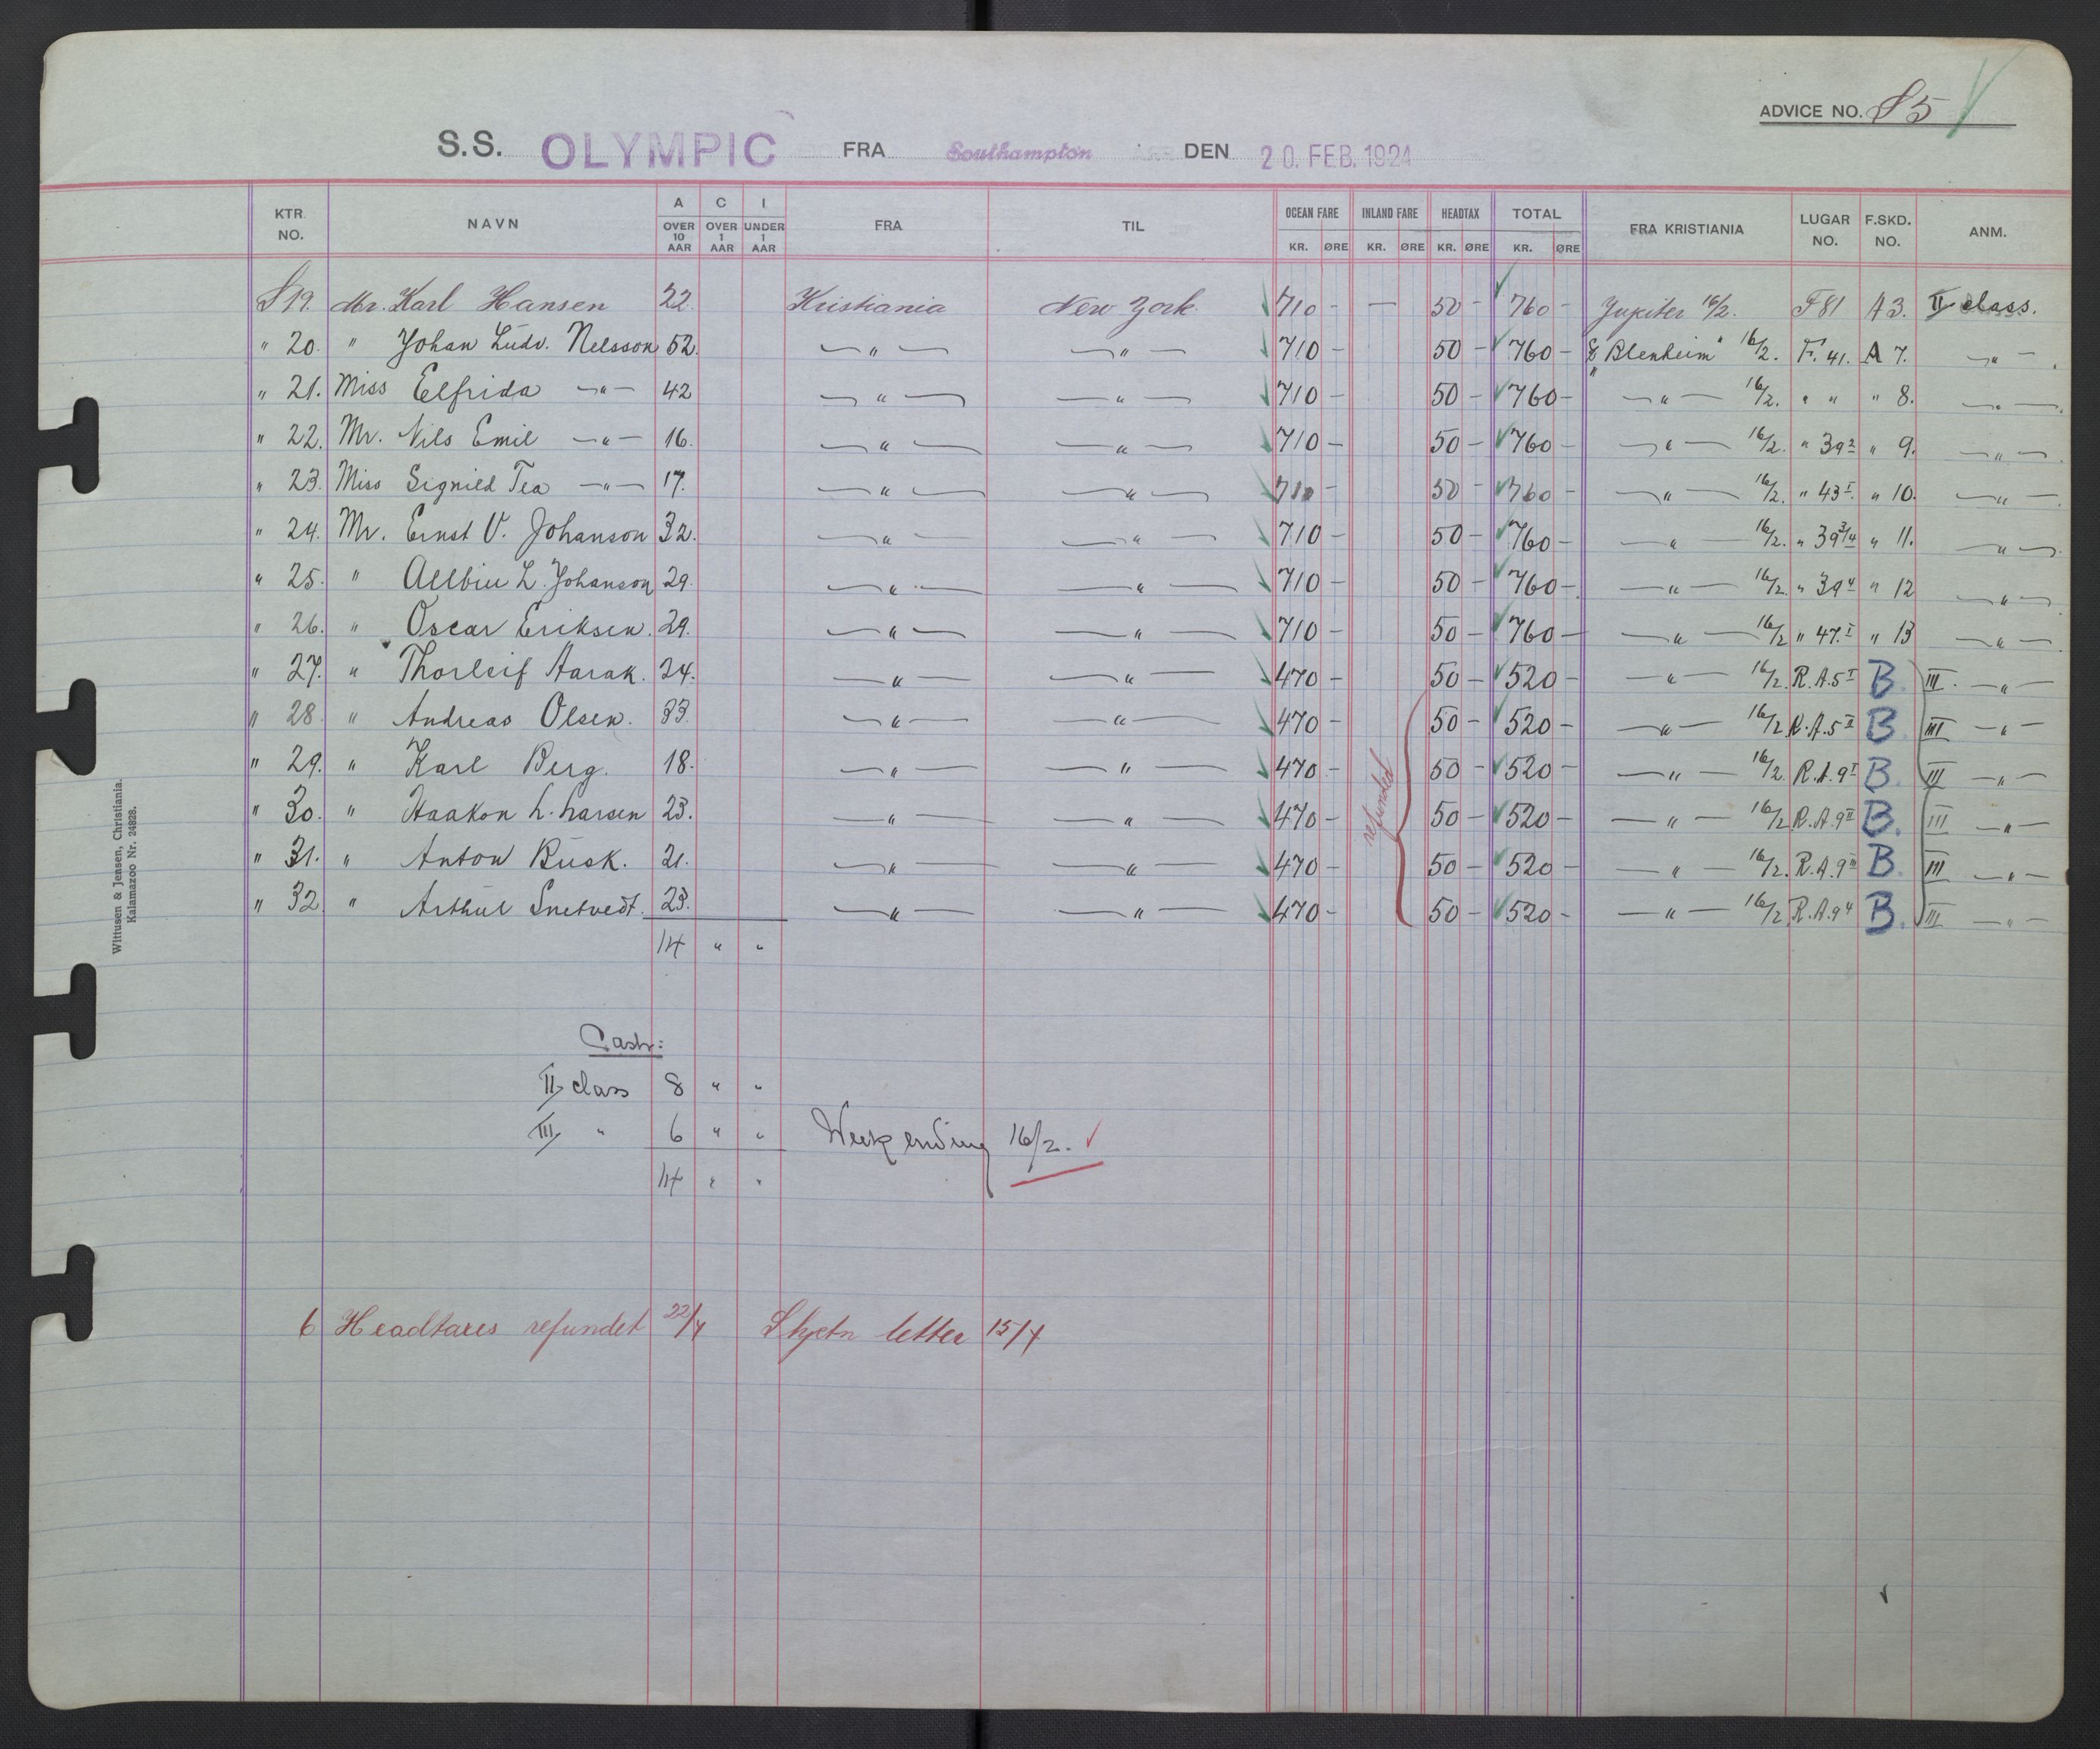 ADVICE NO. S5
S.S. OLYMPIC FRA Southampton DEN 20. FEB. 1924
KTR. NO. NAVN A OVER 10 AAR C OVER 1 AAR I UNDER 1 AAR FRA TIL OCEAN FARE KR. ØRE INLAND FARE KR. ØRE HEADTAX KR. ØRE TOTAL KR. ØRE FRA KRISTIANIA LUGAR NO. F.SKD. NO. ANM.
S 19. Mr. Karl Hansen 22. Kristiania New York 710 - — 50 - 760 - Jupiter 16/2. F 81 A 3. II class.
" 20. " Johan Ludv. Nelsson 52. —"— —"— 710 - 50 - 760 - "Blenheim" 16/2. F. 41. A 7. —"—
" 21. Miss Elfrida —"— 42 —"— —"— 710 - 50 - 760 - —"— 16/2. " " " 8. —"—
" 22. Mr. Nils Emil —"— 16. —"— —"— 710 - 50 - 760 - —"— 16/2. " 39 2 " 9. —"—
" 23. Miss Signild Tea —"— 17. —"— —"— 710 - 50 - 760 - —"— 16/2. " 43 I. " 10. —"—
" 24. Mr. Ernst V. Johanson 32. —"— —"— 710 - 50 - 760 - —"— 16/2. " 39 3/4 " 11. —"—
" 25. " Allbin L. Johanson 29. —"— —"— 710 - 50 - 760 - —"— 16/2. " 39 4 " 12 —"—
" 26. " Oscar Eriksen. 29. —"— —"— 710 - 50 - 760 - —"— 16/2 " 47. I " 13 —"—
" 27. " Thorleif Aarak. 24. —"— —"— 470 - 50 - 520 - —"— 16/2. R.A.5 I B. III. —"—
" 28. " Andreas Olsen. 33. —"— —"— 470 - 50 - 520 - —"— 16/2 R.A.5 II B. III —"—
" 29. " Karl Berg. 18. —"— —"— 470 - 50 - 520 - —"— 16/2. R.A.9 I B. III —"—
" 30. " Haakon L. Larsen 23. —"— —"— 470 - refunded 50 - 520 - —"— 16/2 R.A.9 II B. III —"—
" 31. " Anton Rusk. 21. —"— —"— 470 - 50 - 520 - —"— 16/2. R.A.9 III B. III —"—
" 32. " Arthur Snetvedt. 23. —"— —"— 470 - 50 - 520 - —"— 16/2 R.A.9 4 B. III —"—
14 " "
Cash:
II class 8 " "
III " 6 " " Week ending 16/2.
14 " "
6 Headtaxes refundet 22/4 letter 15/4
Wittusen & Jensen, Christiania.
Kalamazoo Nr. 24828.